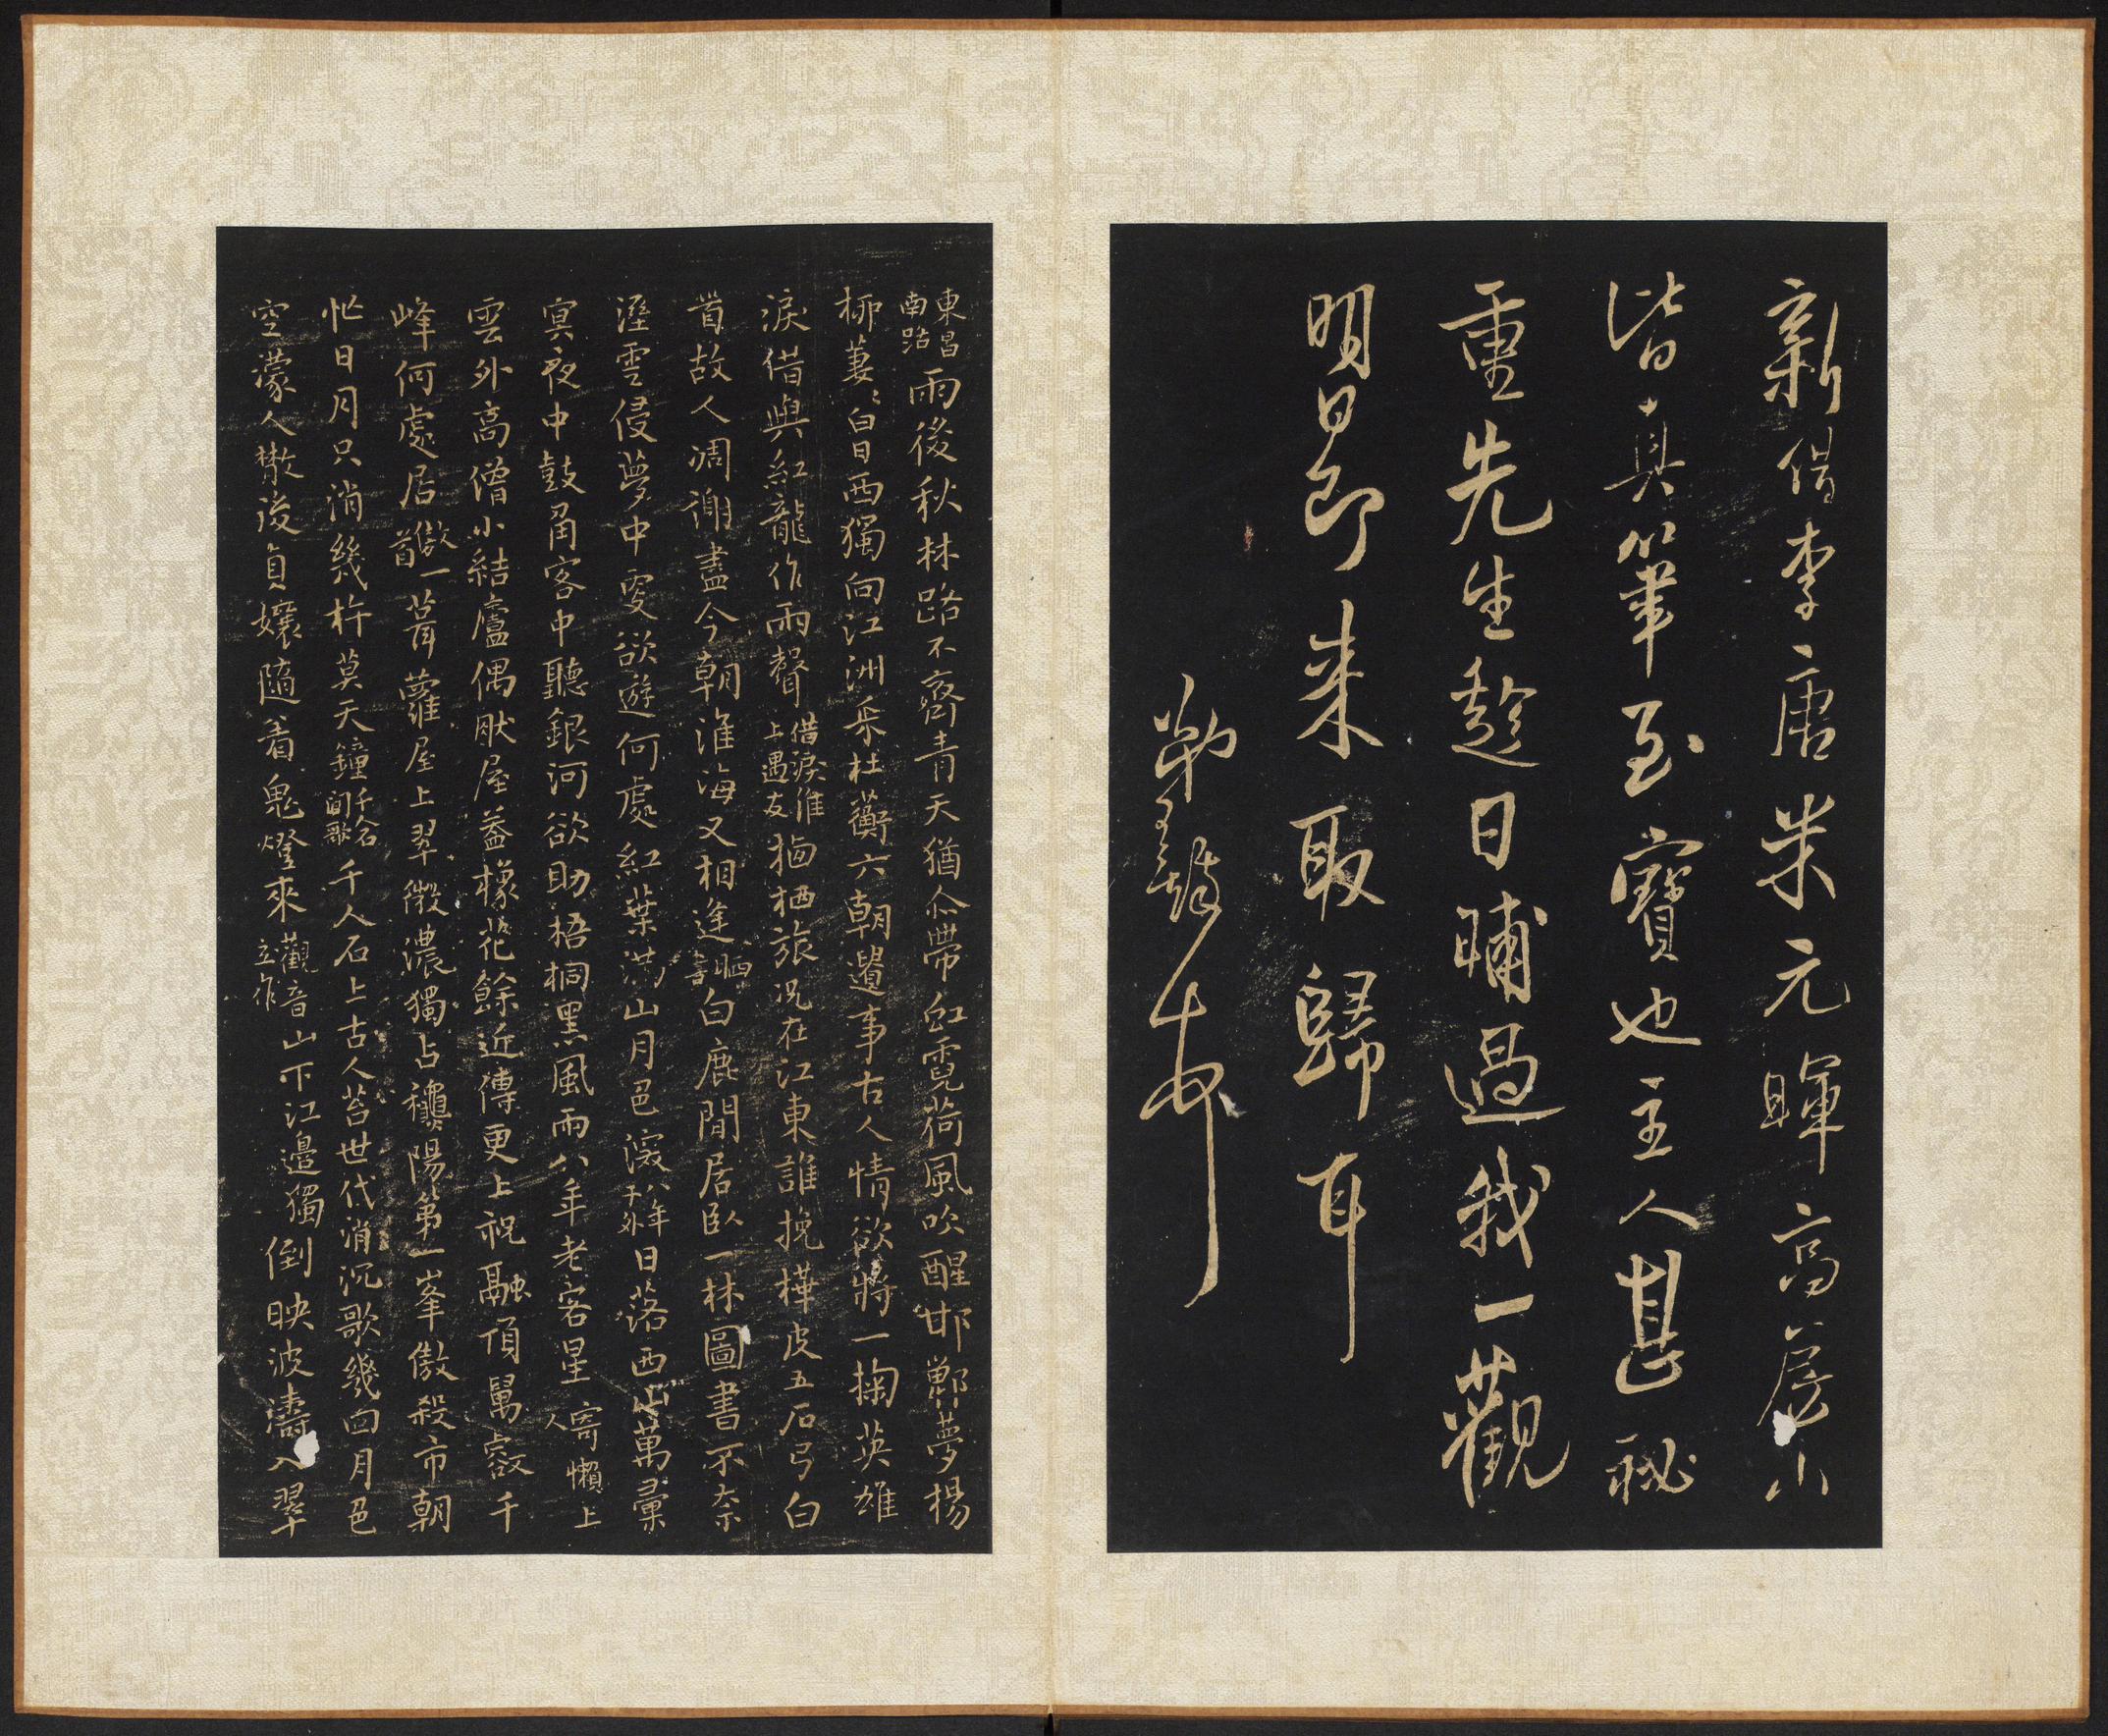 新借李唐米元暉高房山
皆真筆至寶也主人甚祕
重先生趁日晡過我一觀
明日即来取歸耳
弟
東昌
南路
雨後秋林路不齊青天猶尒帶虹霓荷風吹醒邯鄲夢楊
柳萋〻白日西獨向江洲采杜蘅六朝遺事古人情欲將一掬英雄
淚借與紅龍作雨聲
借淚淮
上遇友
栖栖旅況在江東誰挽樺皮五石弓白
首故人凋謝盡今朝淮海又相逢
晒
書
白鹿閒居臥一林圖書不奈
溼雲侵夢中變欲遊何處紅葉洪山月邑深
八年
于外
日落西山萬彙
寞夜中鼓角客中聽銀河欲助梧桐黑風雨八年老客星
寄懶上
人
雲外高僧小結廬偶猒屋蓋椽花餘近傳更上祝融頂萬
千
峰何處居
傲
首
一茸蘿屋上翠微濃獨占衡陽第一峯傲殺市朝
忙日月只消幾杵莫天鐘
千人石
聞歌
千人石上古人苔世代消沉歌幾回月邑
空濛人散後貞孃隨着鬼燈來
觀音
立作
山下江邊獨倒映波濤入翠